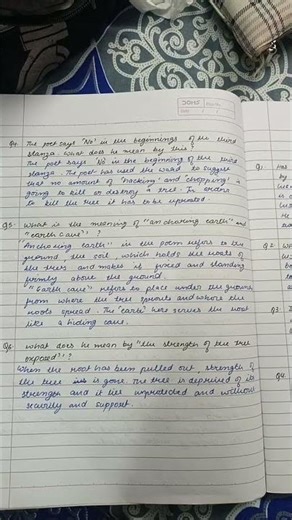 Q4. The poet says 'No' in the beginnings of the third
stanza. what does he mean by this?
The poet says 'No' in the beginning of the third
stanza. The poet has used the word to suggest
that no amount of 'hacking' and 'chopping' is
going to kill or destroy a tree. In order
to kill the tree it has to be uprooted.
Q5. What is the meaning of "anchoring earth" and
"earth cave"?
Anchoring earth" in the poem refers to the
ground, the soil, which holds the roots of
the trees and makes it fixed and standing
firmly above the ground.
"Earth cave" refers to place under the ground
from where the tree sprouts and where the
roots spread. The earth here serves the root
like a hiding cave.
Q6. what does he mean by "the strength of the tree
exposed"?
When the root has been pulled out, strength of
the tree is gone. The tree is deprived of its
strength and it lies unprotected and without
security and support.
Q1.
Q2.
Q3
Q4.